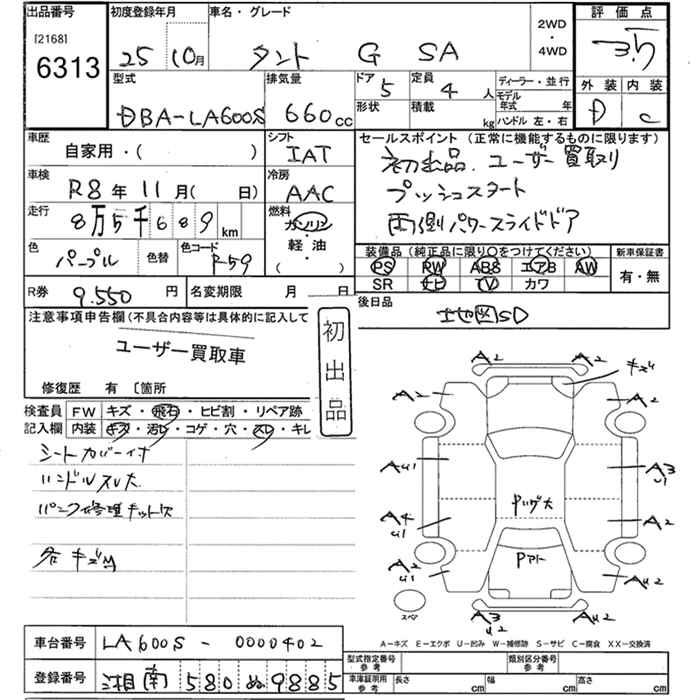 出品番号 初度登録年月 車名・グレード 評価点
[2168] 6313 25 10月 タント G SA 2WD・4WD 3.5
外装 内装
D C
型式 排気量 ドア 定員 ディーラー・並行
DBA-LA600S 660cc 5 4人 モデル年式 年
形状 積載 kg ハンドル 左・右
車歴 シフト セールスポイント (正常に機能するものに限ります)
自家用・( ) IAT 初出品 ユーザー買取り
車検 冷房 プッシュスタート
R8年11月( 日) AAC 両側パワースライドドア
走行 燃料
8万5千689km ガソリン・軽・油 ( )
色 色替 色コード 装備品(純正品に限り○をつけてください) 新車保証書
パープル P59 PS PW ABS エアB AW 有・無
SR ナビ TV カワ
R券 9.550円 名変期限 月 日 後日品
地図SD
注意事項申告欄(不具合内容等は具体的に記入して
ユーザー買取車
初出品
修復歴 有 〔箇所
検査員記入欄 FW キズ・飛石・ヒビ割・リペア跡
内装 キズ・汚レ・コゲ・穴・スレ・キレ
シートカバー付
ハンドルスレ大
パンク修理キット欠
各キズM
A2 A2 キズ
A2 A2
AU1 A3 U1
ヤリグ大
A4 U1 A2
Pアト
A2 U1 AU2
スペア A3 U2 AU2
A-キズ E-エクボ U-凹み W-補修跡 S-サビ C-腐食 XX-交換済
車台番号 LA600S-0000402 型式指定番号 参考 類別区分番号 参考
登録番号 湘南 580 ぬ 9885 車庫証明用 参考 長さ cm 幅 cm 高さ cm